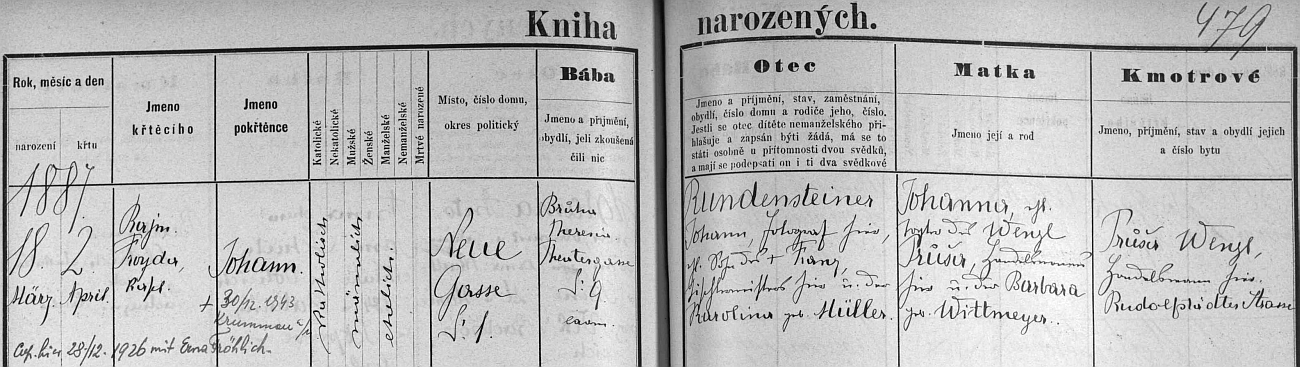 Kniha narozených.
479
Rok, měsíc a den
narození křtu
Jmeno
křtěcího
Jmeno
pokřtěnce
Katolické
Nekatolické
Mužské
Ženské
Manželské
Nemanželské
Mrtvé narozené
Místo, číslo domu,
okres politický
Bába
Jmeno a přijmení,
obydlí, jeli zkoušená
čili nic
Otec
Jmeno a příjmení, stav, zaměstnání,
obydlí, číslo domu a rodiče jeho, číslo.
Jestli se otec dítěte nemanželského při-
hlašuje a zapsán býti žádá, má se to
státi osobně u přítomnosti dvou svědků,
a mají se podepsati on i ti dva svědkové
Matka
Jmeno její a rod
Kmotrové
Jmeno, příjmení, stav a obydlí jejich
a číslo bytu
1887
18. 2.
März April.
Johann.
+ 30/12. 1943
Krummau
Cop. hier 28./12. 1926 mit Erna Fröhlich.
Katholisch
männlich
ehelich
Neue
Gasse
N: 1.
Bruha
Theresia
Theatergasse
N: 9
Rundensteiner
Johann, Fotograf hier,
ehl. Sohn des + Franz,
hier u. der
Karolina geb. Müller.
Johanna, ehl.
Tochter des Wenzl
Průšer, Handelsmanns
hier u. der Barbara
geb. Wittmeyer.
Průšer Wenzl,
Handelsmann hier.
Rudolfstädter Strasse